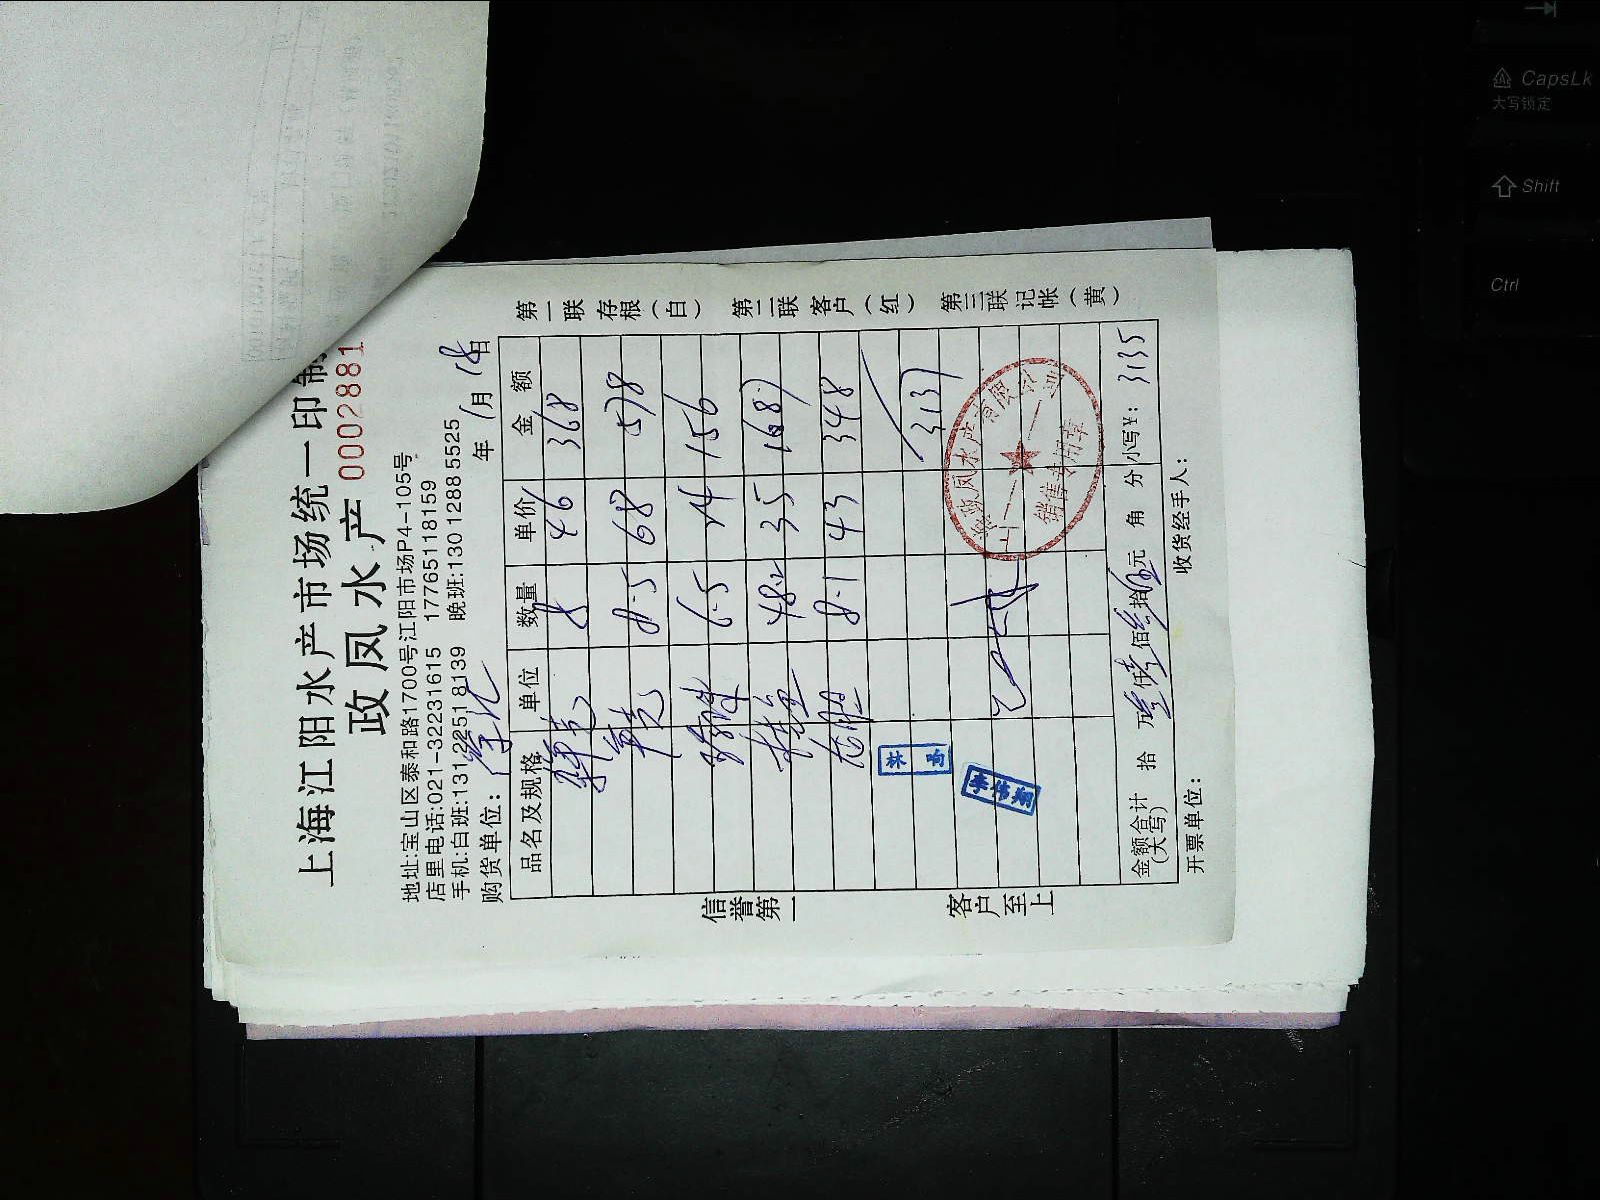 上海江阳水产市场统一印制
政凤水产 0002881
地址:宝山区泰和路1700号江阳市场P4-105号
店里电话:021-32231615 17765118159
手机:白班:131 2251 8139 晚班:130 1288 5525
购货单位: 年 1月 18日
品名及规格 单位 数量 单价 金额
8 46 368
8.5 68 578
6.5 24 156
48.2 35 1687
8.1 43 348
3137
林喻
李伟翔
政凤水产有限公司
销售专用章
金额合计(大写) 拾 万 叁仟 壹佰 叁拾 伍元 角 分 小写¥: 3135
开票单位: 收货经手人:
第一联存根(白) 第二联客户(红) 第三联记帐(黄)
信誉第一 客户至上
CapsLk
大写锁定
Shift
Ctrl